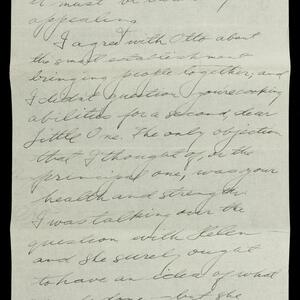 it must be
appealing
I agree with Otto about
the small establishment
bringing people together, and
I didn't question your cooking
abilities for a second, dear
Little One. The only objection
that I thought of, or the
principal one, was your
health and strength.
I was talking over the
question with Helen
and she surely ought
to have an idea of what
done — but she